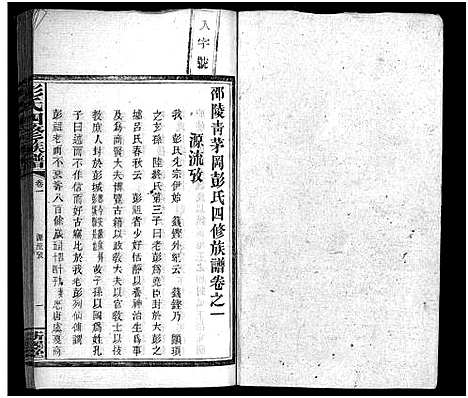 人字號
邵陵青茅岡彭氏四修族譜卷之一
源流攷
我　彭氏先宗伊始　籛鏗外紀云　籛鏗乃　顓頊
之玄孫　陸終氏第三子曰老彭爲堯臣封於大彭之
墟呂氏春秋云　彭祖者少好恬靜以養神治生爲事
及爲商賢大夫博覽古籍以政教大夫以官教士以技
教庶人封於彭城　故子孫以國爲姓孔
子曰述而不作信而好古竊比於我老彭列仙傳謂
彭祖老而不衰壽八百餘歲　唐虞夏商
彭氏四修族譜
卷一
源流攷
一